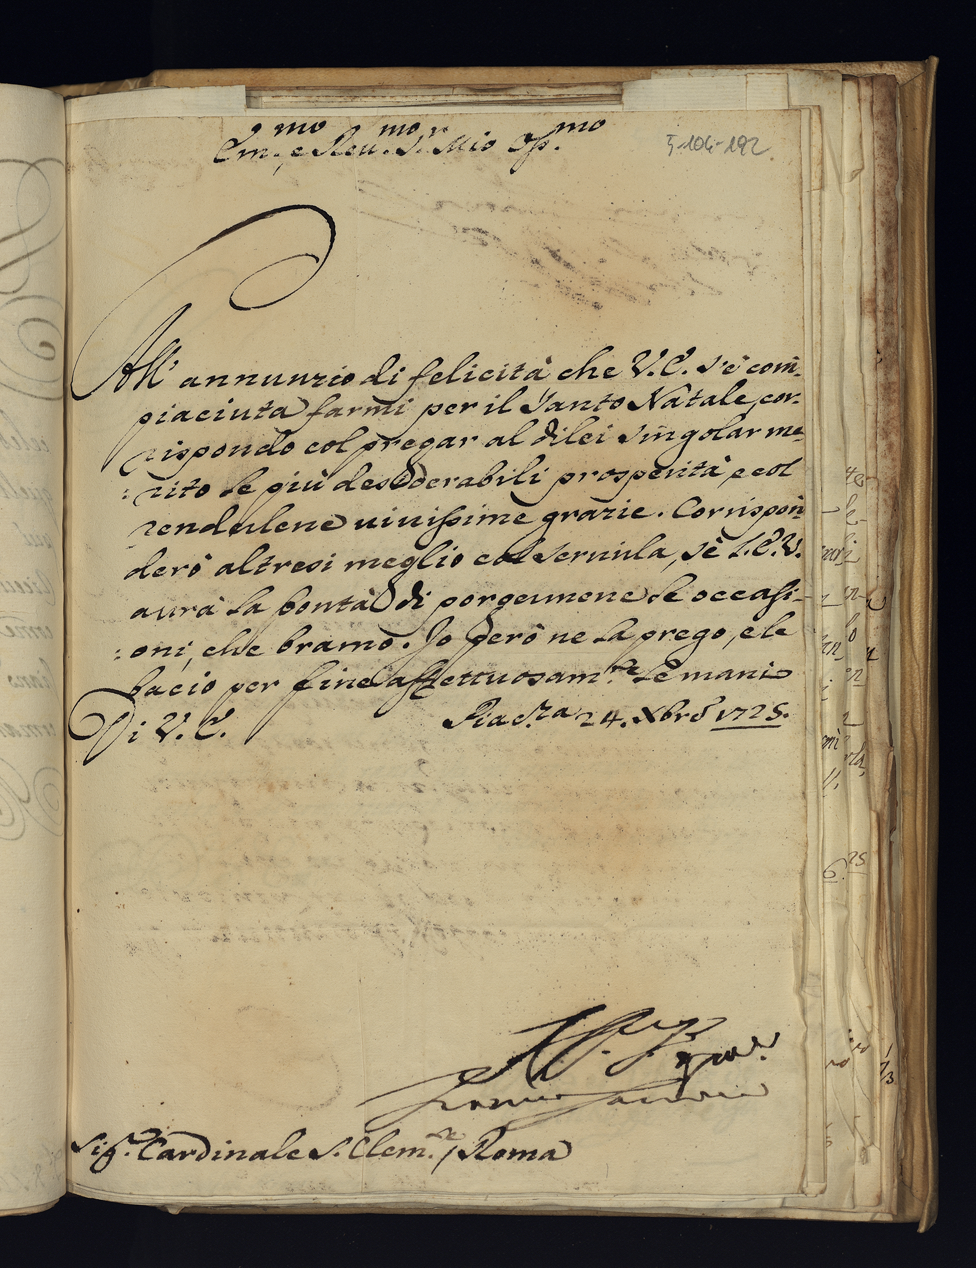 Em.mo, e Reu.mo S.r Mio Oss.mo
5-104-192
All' annunzio di felicità che V.E. s'è com-
piaciuta farmi per il Santo Natale, cor-
rispondo col pregar al di lei singolar me-
rito le più desiderabili prosperità, e col
rendulene uiuissime grazie. Corrispon
derò altresi meglio col seruirla, sè L'E.V.
aurà la bontà di porgeumene le occasi-
oni, che bramo. Io però ne la prego, e le
bacio per fine affettuosam.te le mani
Di V.E. Piac.za 24. Xbre 1725.
Sig.r Cardinale S. Clem.te / Roma